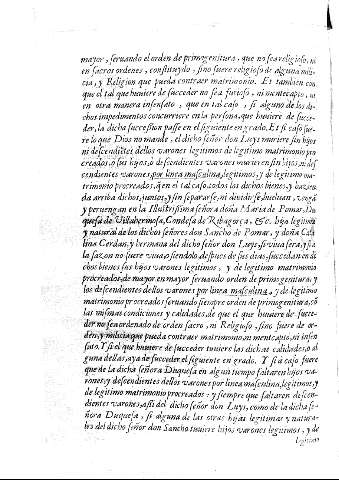 mayor, seruando el orden de primogenitura, que no sea religioso, ni
en sacros ordenes, constituydo, sino fuere religioso de alguna mili
cia, y Religion que pueda contraer matrimonio. Et tambien con
que el tal que huuiere de succeder no sea furioso, ni mentecapto, ni
en otra manera insensato, que en tal caso, si alguno de los di
chos impedimentos concurriere en la persona, que huuiere de succe
der, la dicha succession passe en el siguiente en grado. Et si caso fue
re lo que Dios no mande, el dicho señor don Luys muriere sin hijos
ni descendientes dellos varones legitimos de legitimo matrimonio pro
creados, o sus hijos, o descendientes varones murieren sin hijos, ni des
cendientes varones, por linea masculina, legitimos, y de legitimo ma
trimonio procreados, q̃ en el tal caso, todos los dichos bienes, y hazien
da arriba dichos, juntos, y sin separarse, ni diuidirse, bueluan, vengã
y peruengan en la Illustrissima señora doña Maria de Pomar, Du
quesa de Villahermosa, Condesa de Ribagorça, &c. hija legitima
y natural de los dichos señores don Sancho de Pomar, y doña Ca
lina Cerdan, y hermana del dicho señor don Luys, si viua sera, y si a
la sazon no fuere viua, siendolo, despues de sus dias, succedan en di
chos bienes sus hijos varones legitimos, y de legitimo matrimonio
procreados de mayor en mayor, seruando orden de primogenitura, y
los descendientes dellos varones por linea masculina, y de legitimo
matrimonio procreados, seruando siempre orden de primogenitura, cõ
las mismas condiciones y calidades, de que el que huuiere de succe-
der no sea ordenado de orden sacro, ni Religioso, sino fuere de or-
den, y milicia que pueda contraer matrimonio, ni mentecapto, ni insen
sato. Y si el que huuiere de succeder tuuiere las dichas calidades, o al
guna dellas, aya de succeder el siguiente en grado. Y si a caso fuere
que de la dicha señora Duquesa en algun tiempo faltaren hijos va-
rones, y descendientes dellos varones por linea masculina, legitimos, y
de legitimo matrimonio procreados: y siempre que faltaren descen-
dientes varones, assi del dicho señor don Luys, como de la dicha se-
ñora Duquesa, si alguna de las otras hijas legitimas y natura-
les del dicho señor don Sancho tuuiere hijos varones legitimos, y de
legitimo